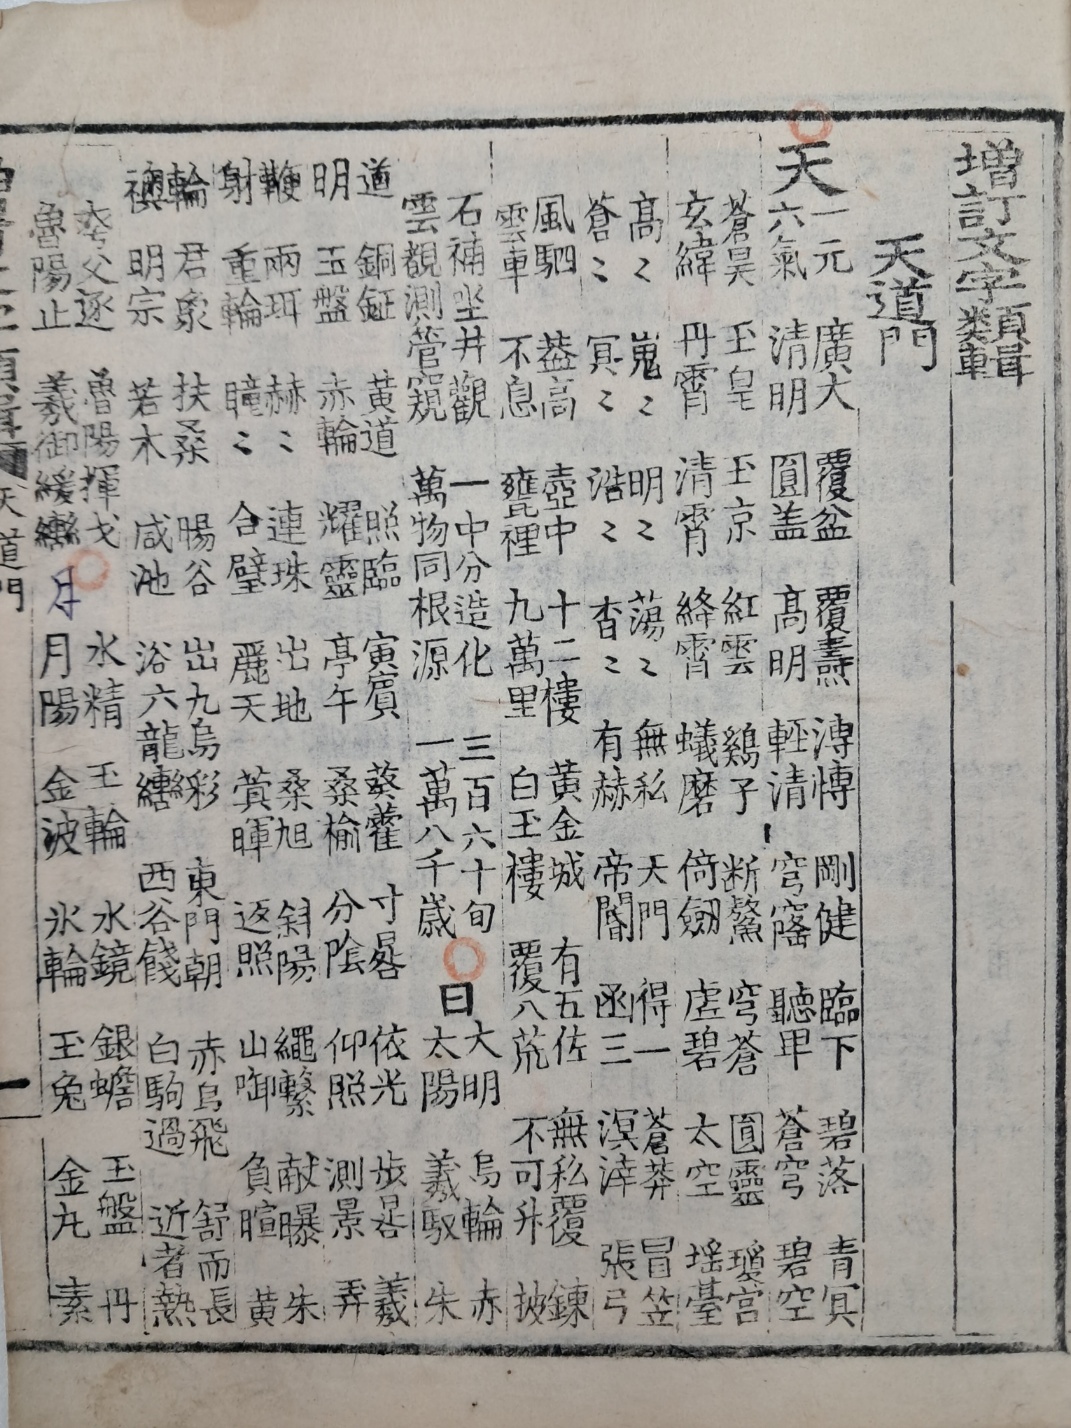 增訂文字類輯
天道門
天
一元 廣大 覆盆 覆燾 溥博 剛健 臨下 碧落 青冥
六氣 清明 圓盖 高明 輕清 穹窿 聽卑 蒼穹 碧空
蒼昊 玉皇 玉京 紅雲 鷄子 断鰲 穹蒼 圓靈 瓊宮
玄緯 丹霄 清霄 絳霄 蟻磨 倚劒 虛碧 太空 瑶臺
高〻 嵬〻 明〻 蕩〻 無私 天門 得一 蒼莽 冒笠
蒼〻 冥〻 浩〻 杳〻 有赫 帝閽 函三 溟涬 張弓
風駟 盖高 壺中 十二樓 黃金城 有五佐 無私覆 鍊
雲車 不息 甕裡 九萬里 白玉樓 覆八荒 不可升 披
石補 坐井觀 一中分造化 三百六十旬
雲覩 測管窺 萬物同根源 一萬八千歲
日
大明 烏輪 赤
太陽 羲馭 朱
道 銅鉦 黄道 照臨 寅賓 葵藿 寸晷 依光 步晷 羲
明 玉盤 赤輪 耀靈 亭午 桑榆 分陰 仰照 測景 弄
鞭 兩珥 赫〻 連珠 出地 桑旭 斜陽 繩繫 献曝 朱
射 重輪 曈〻 合璧 麗天 蓂暉 返照 山啣 負暄 黄
輪 君象 扶桑 暘谷 出九烏彩 東門朝 赤烏飛 舒而長
明宗 若木 咸池 浴六龍轡 西谷餞 白駒過 近者熱
夸父逐 魯陽揮戈
魯陽止 羲御緩轡
月
水精 玉輪 水鏡 銀蟾 玉盤 丹
月陽 金波 氷輪 玉兔 金丸 素
天道門 一